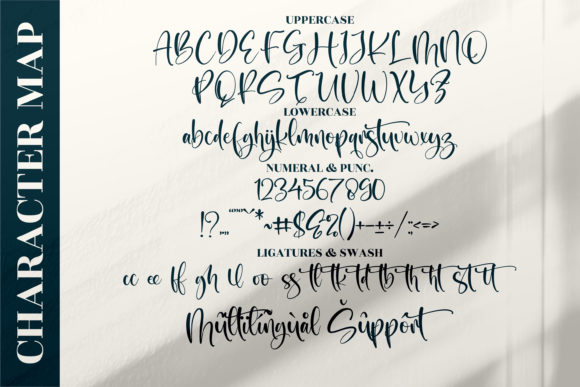 CHARACTER MAP
UPPERCASE
ABCDEFGHIJKLMNO
PQRSTUVWXYZ
LOWERCASE
abcdefghijklmnopqrstuvwxyz
NUMERAL & PUNC.
1234567890
LIGATURES & SWASH
cc ee ff gh ll oo ss tl tk td tb th ht st tt
Mũltilíngùål Šûppört